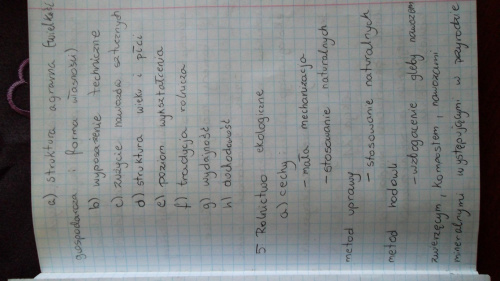 a) struktura agrarna (wielkość
gospodarza i forma własności)
b) wyposażenie techniczne
c) zużycie nawozów sztucznych
d) struktura wieku i płci
e) poziom wykształcenia
f) tradycja rolnicza
g) wydajność
h) dochodowość
5 Rolnictwo ekologiczne
a) cechy
- mała mechanizacja
- stosowanie naturalnych
metod uprawy
- stosowanie naturalnych
metod hodowli
- wzbogacenie gleby nawozem
zwierzęcym, kompostem, nawozami
mineralnymi występującymi w przyrodzie